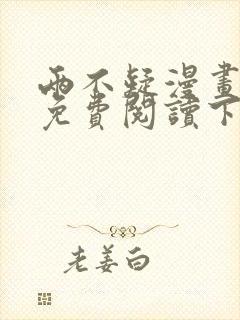 兩不疑漫畫
免費閱讀下
老姜白